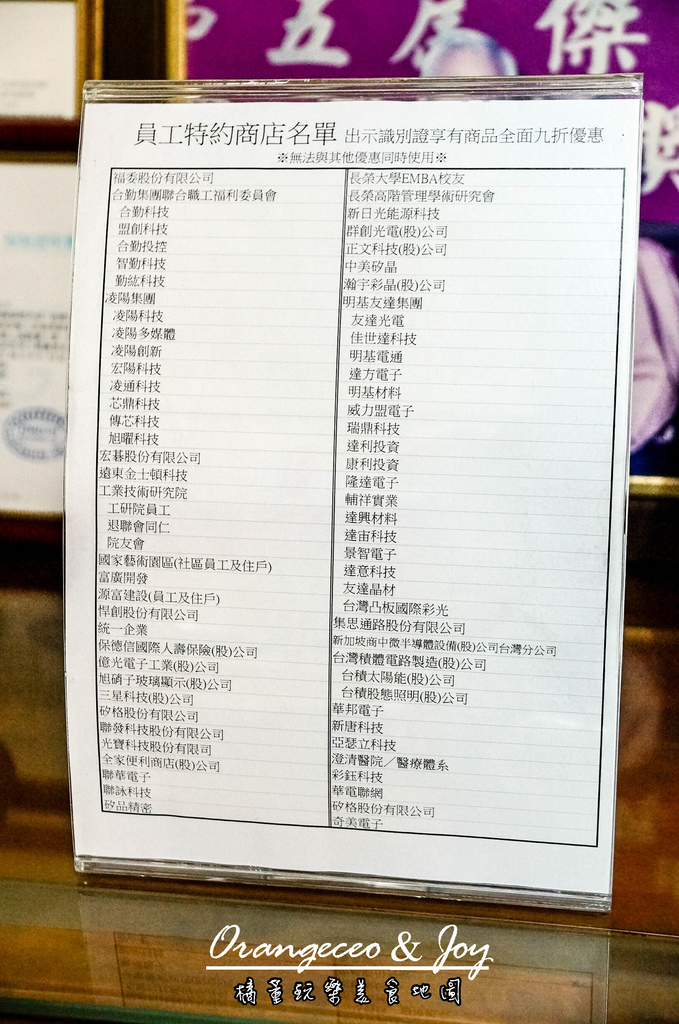 五屆傑
員工特約商店名單 出示識別證享有商品全面九折優惠
※無法與其他優惠同時使用※
福委股份有限公司
合勤集團聯合職工福利委員會
合勤科技
盟創科技
合勤投控
智勤科技
勤紘科技
凌陽集團
凌陽科技
凌陽多媒體
凌陽創新
宏陽科技
凌通科技
芯鼎科技
傳芯科技
旭曜科技
宏碁股份有限公司
遠東金士頓科技
工業技術研究院
工研院員工
退聯會同仁
院友會
國家藝術園區(社區員工及住戶)
富廣開發
源富建設(員工及住戶)
悍創股份有限公司
統一企業
保德信國際人壽保險(股)公司
億光電子工業(股)公司
旭硝子玻璃顯示(股)公司
三星科技(股)公司
矽格股份有限公司
聯發科技股份有限公司
光寶科技股份有限司
全家便利商店(股)公司
聯華電子
聯詠科技
矽品精密
長榮大學EMBA校友
長榮高階管理學術研究會
新日光能源科技
群創光電(股)公司
正文科技(股)公司
中美矽晶
瀚宇彩晶(股)公司
明基友達集團
友達光電
佳世達科技
明基電通
達方電子
明基材料
威力盟電子
瑞鼎科技
達利投資
康利投資
隆達電子
輔祥實業
達興材料
達宙科技
景智電子
達意科技
友達晶材
台灣凸板國際彩光
集思通路股份有限公司
新加坡商中微半導體設備(股)公司台灣分公司
台灣積體電路製造(股)公司
台積太陽能(股)公司
台積股態照明(股)公司
華邦電子
新唐科技
亞瑟立科技
澄清醫院／醫療體系
彩鈺科技
華電聯網
矽格股份有限公司
奇美電子
Orangeceo & Joy
橘童玩樂美食地圖